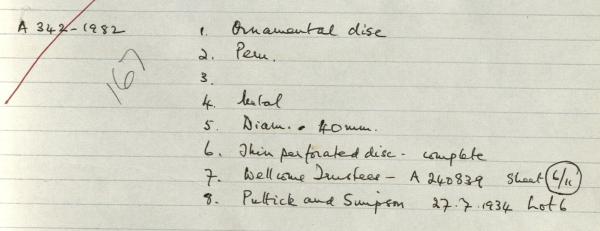 A 342-1982 1. Ornamental disc
167
2. Peru.
3.
4. Metal
5. Diam. 40mm.
6. Thin perforated disc - complete
7. Wellcome Trustees - A 240839 Sheet 6/11
8. Puttick and Simpson 27.7.1934 Lot 6